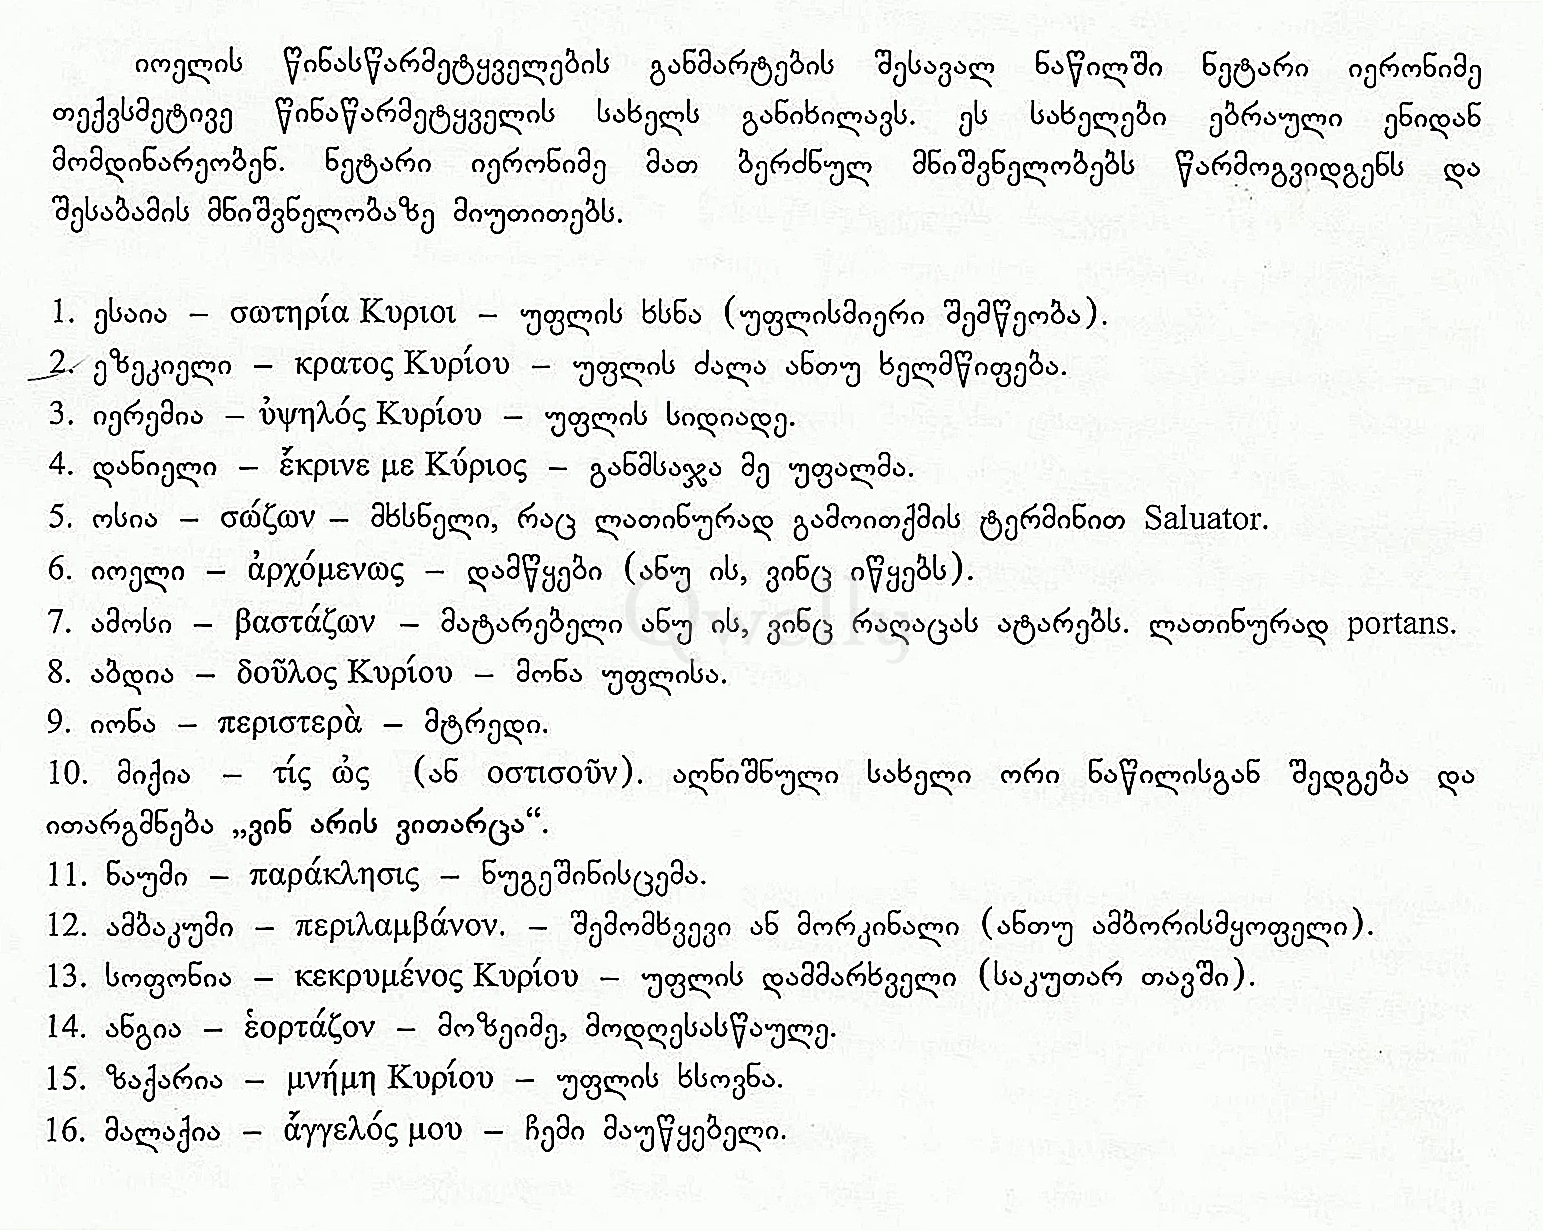 იოელის წინასწარმეტყველების განმარტების შესავალ ნაწილში ნეტარი იერონიმე
თექვსმეტივე წინაწარმეტყველის სახელს განიხილავს. ეს სახელები ებრაული ენიდან
მომდინარეობენ. ნეტარი იერონიმე მათ ბერძნულ მნიშვნელობებს წარმოგვიდგენს და
შესაბამის მნიშვნელობაზე მიუთითებს.
1. ესაია – σωτηρία Κυριοι – უფლის ხსნა (უფლისმიერი შემწეობა).
2. ეზეკიელი – κρατος Κυρίου – უფლის ძალა ანთუ ხელმწიფება.
3. იერემია – ὑψηλός Κυρίου – უფლის სიდიადე.
4. დანიელი – ἔκρινε με Κύριος – განმსაჯა მე უფალმა.
5. ოსია – σώζων – მხსნელი, რაც ლათინურად გამოითქმის ტერმინით Saluator.
6. იოელი – ἀρχόμενως – დამწყები (ანუ ის, ვინც იწყებს).
7. ამოსი – βαστάζων – მატარებელი ანუ ის, ვინც რაღაცას ატარებს. ლათინურად portans.
8. აბდია – δοῦλος Κυρίου – მონა უფლისა.
9. იონა – περιστερὰ – მტრედი.
10. მიქია – τίς ὡς (ან οστισοῦν). აღნიშნული სახელი ორი ნაწილისგან შედგება და
ითარგმნება „ვინ არის ვითარცა“.
11. ნაუმი – παράκλησις – ნუგეშინისცემა.
12. ამბაკუმი – περιλαμβάνον. – შემომხვევი ან მორკინალი (ანთუ ამბორისმყოფელი).
13. სოფონია – κεκρυμένος Κυρίου – უფლის დამმარხველი (საკუთარ თავში).
14. ანგია – ἑορτάζον – მოზეიმე, მოდღესასწაულე.
15. ზაქარია – μνήμη Κυρίου – უფლის ხსოვნა.
16. მალაქია – ἄγγελός μου – ჩემი მაუწყებელი.
Qwelly